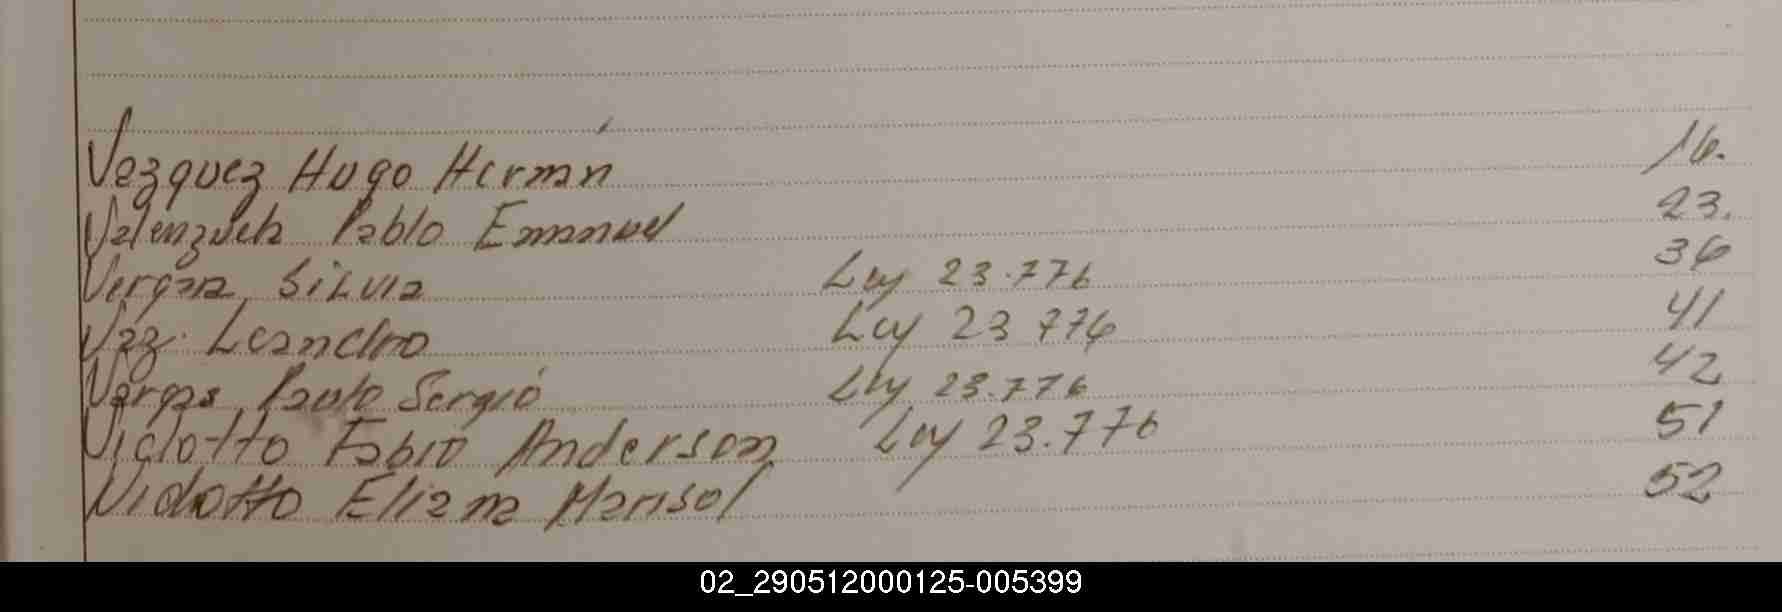 Vazquez Hugo Hernán 16.
Valenzuela Pablo Emanuel 23.
Vergara, Silvia Ley 23.776 36
Vaz. Leandro Ley 23 776 41
Vargas, Paulo Sergio Ley 23.776 42
Vidotto Fabio Anderson Ley 23.776 51
Vidotto Eliana Marisol 52
02_290512000125-005399